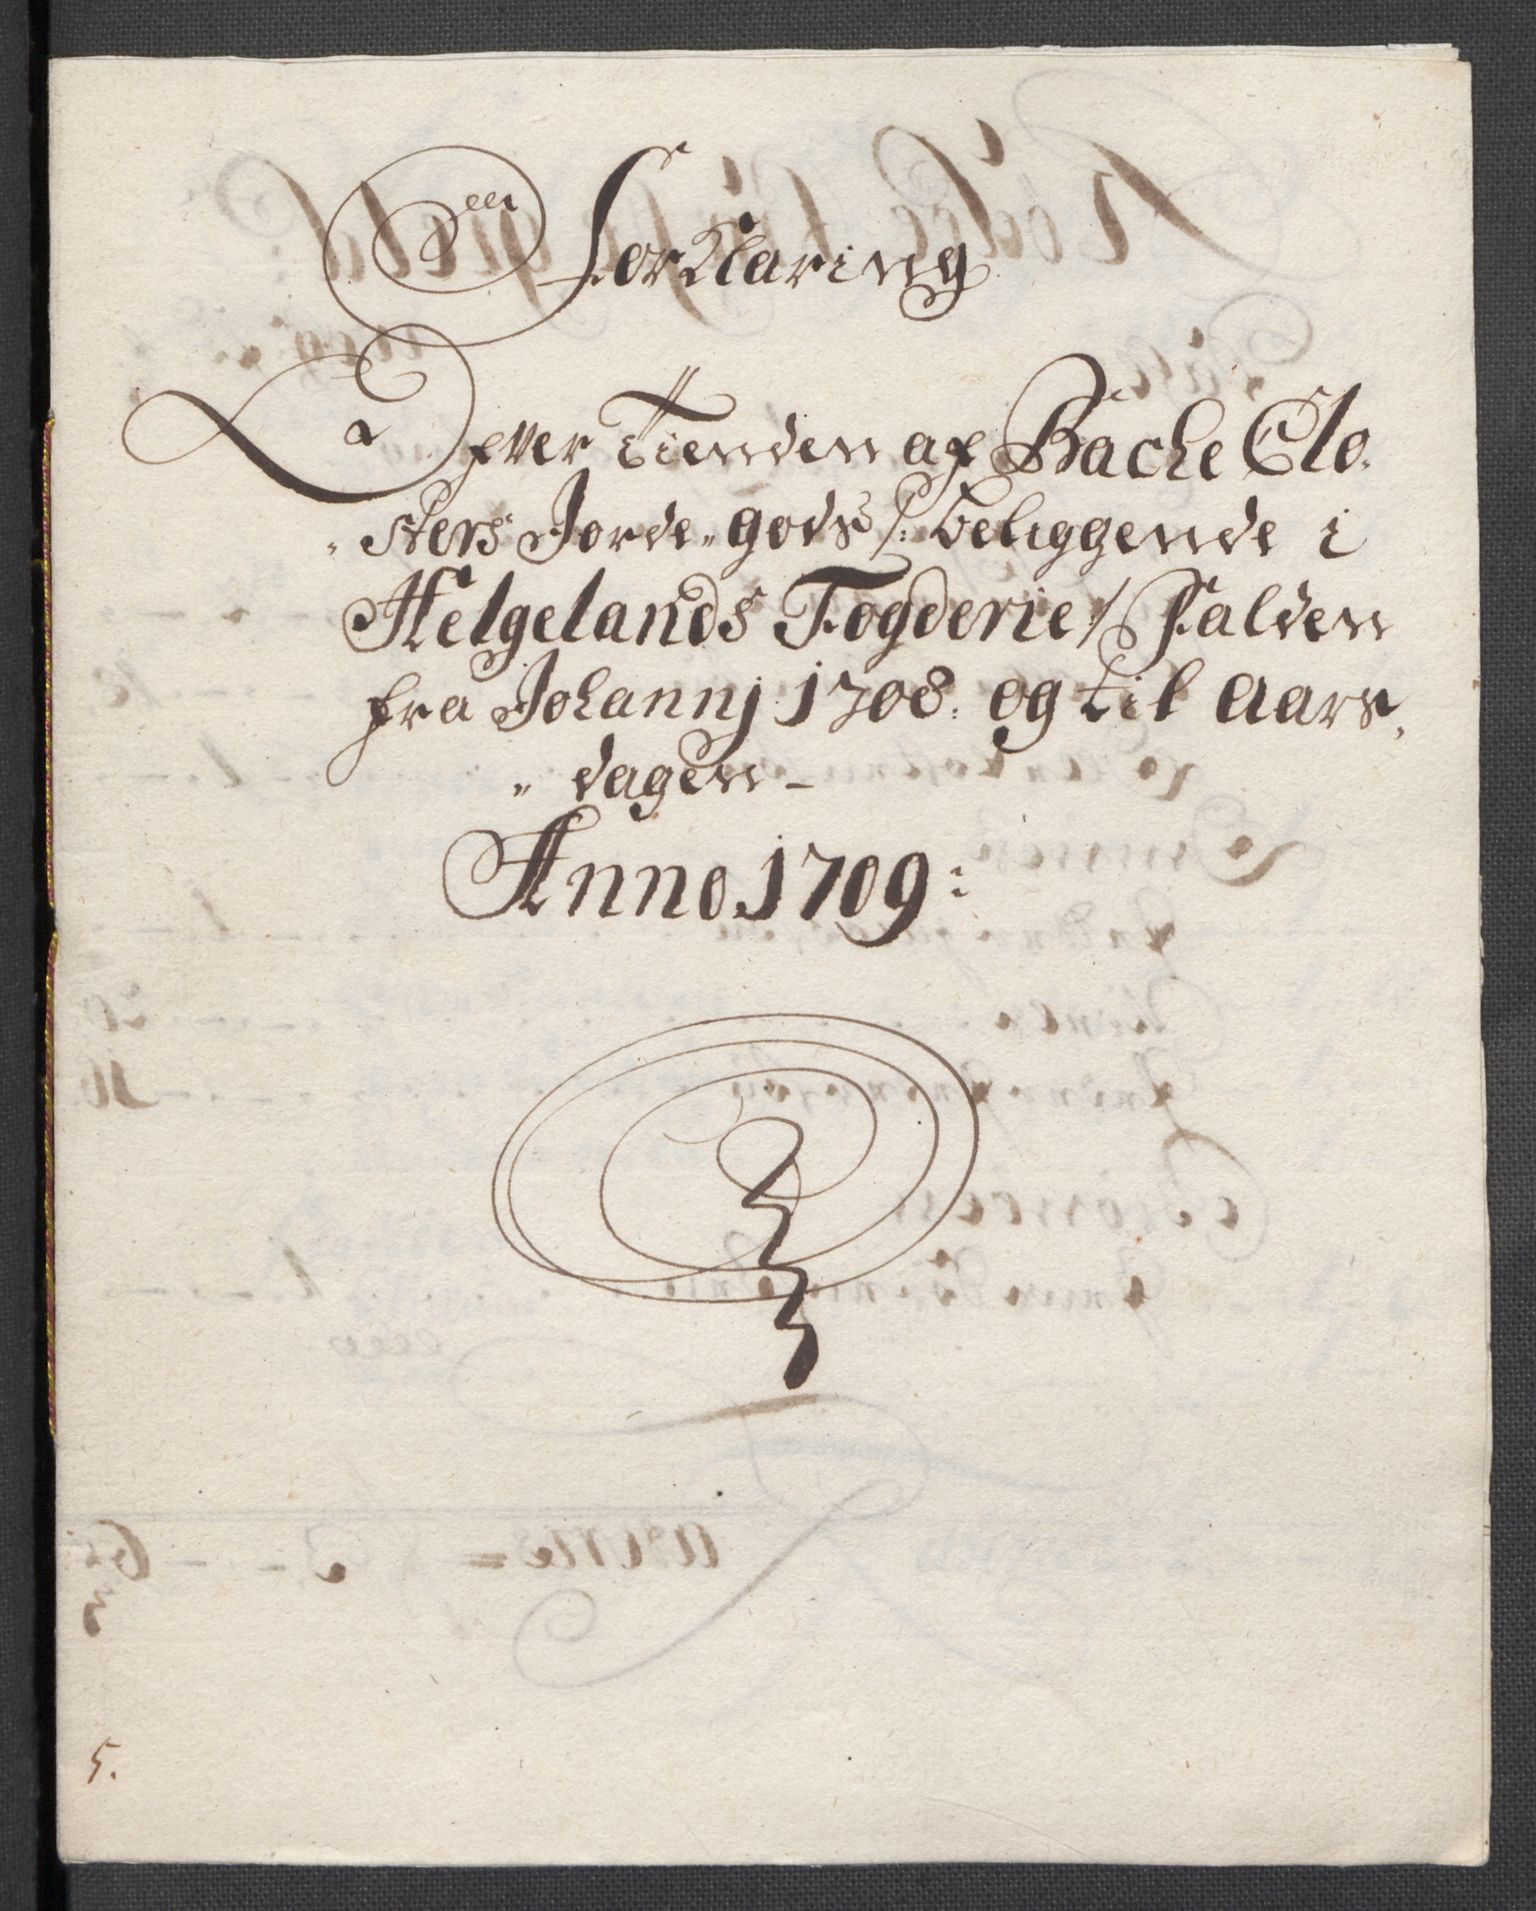 Forklaring
Ofver Tienden af Backe Clo.
„ sters Jorde„gods /: beliggende i
Helgelands Fogderie / Falden
fra Johannj 1708. og til Aars,
„ dagen –
Anno. 1709:
5.